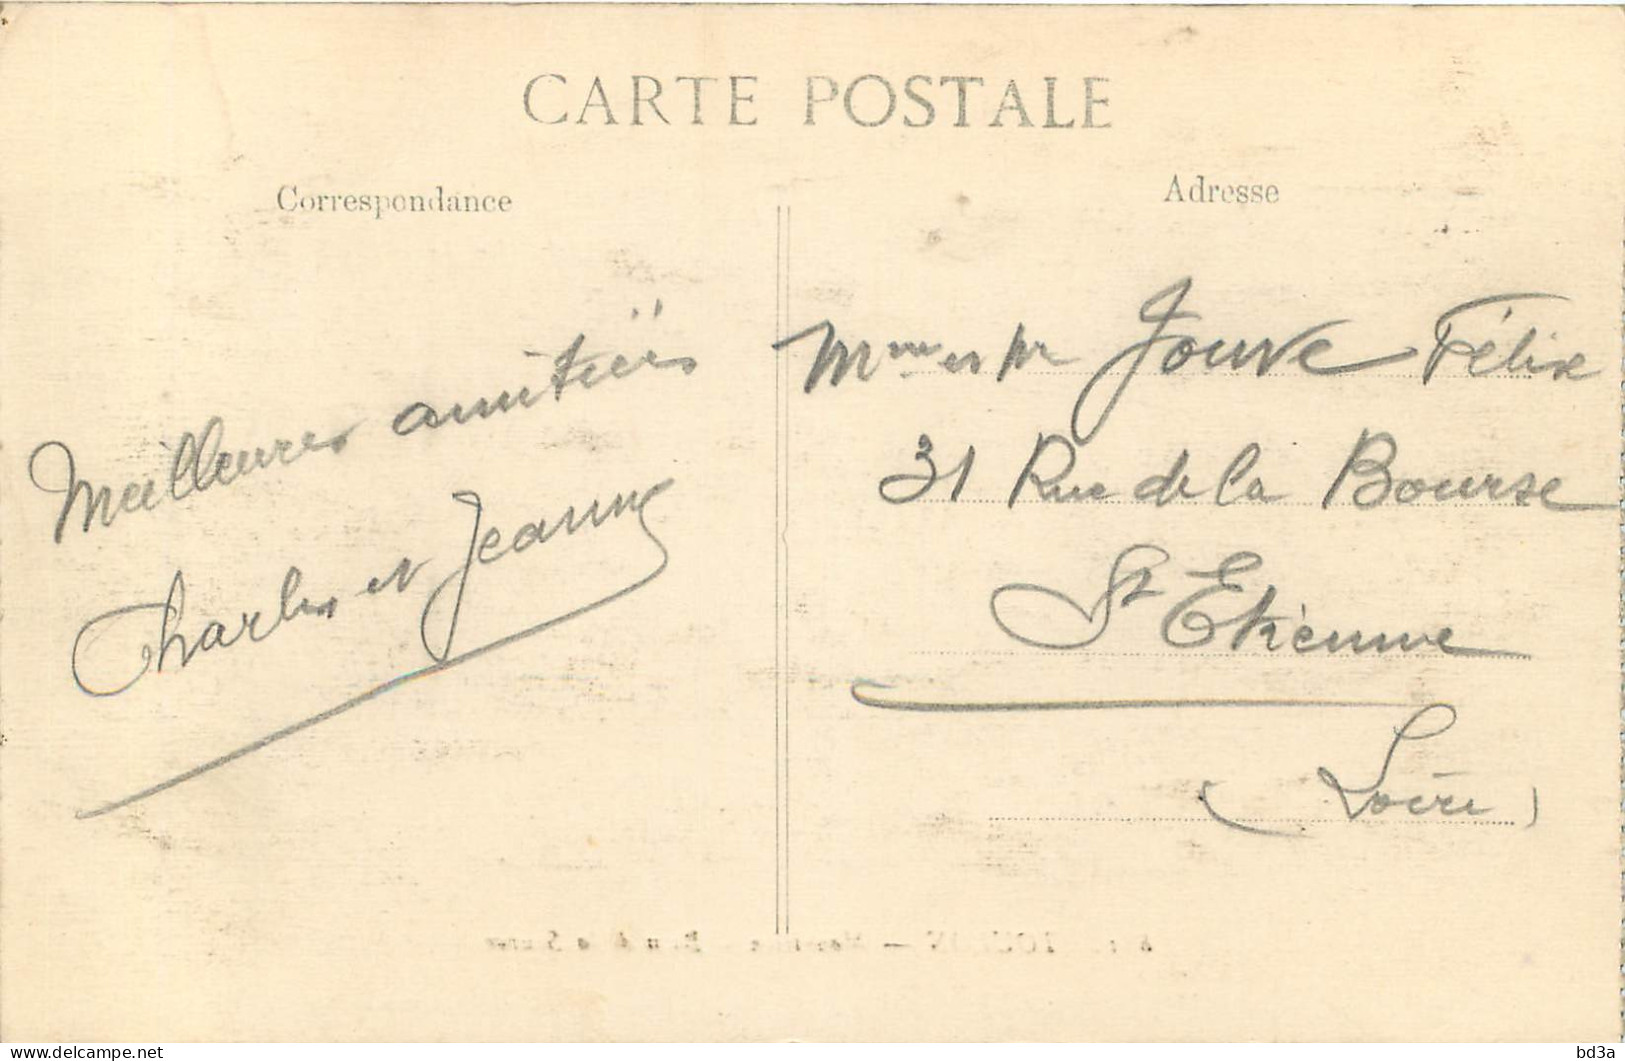 CARTE POSTALE
Correspondance
Meilleures amitiés
Charles et Jeanne
Adresse
Mme et Mr Jouve Félix
31 Rue de la Bourse
St Etienne
(Loire)
TOULON —
bd3a